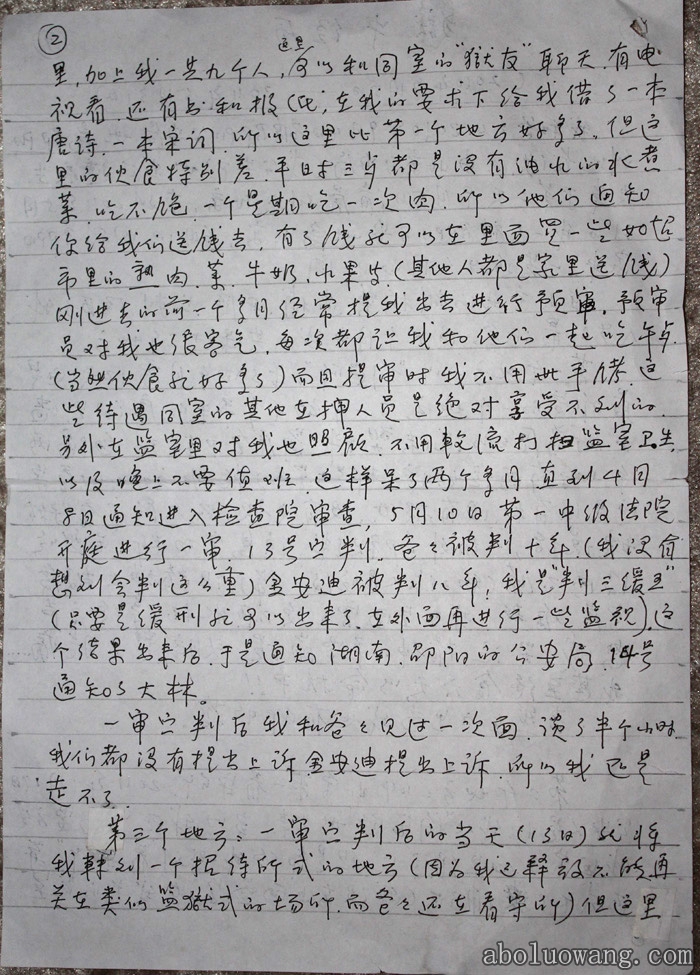 ②
里,加上我一共九个人,这里可以和同室的"獄友"聊天,有电
视看,还有书和报(纸,在我的要求下给我借了一本
唐诗,一本宋词,所以这里比第一个地方好多了,但这
里的伙食特别差,平时三歺都是没有油水的水煮
菜,吃不饱,一个星期吃一次肉,所以他们通知
你给我们送钱去,有了钱就可以在里面买一些如超
市里的熟肉、菜、牛奶、水果等,(其他人都是家里送钱)
刚进去的前一个多月经常提我出去进行预审,预审
员对我也很客气,每次都让我和他们一起吃午歺
(当然伙食就好多了)而且提审时我不用带手铐,这
些待遇同室的其他在押人员是绝对享受不到的,
另外在监室里对我也照顾,不用轮流打扫监室卫生
以及晚上不要值班,这样呆了两个多月直到4月
8日通知进入检查院审查,5月10日第一中级法院
开庭进行一审,13号宣判,爸爸被判十年,(我没有
想到会判这么重)金安迪被判八年,我是"判三缓五"
(只要是缓刑就可以出来了,在外面再进行一些监视),这
个结果出来后,于是通知湖南、邵阳的公安局,14号
通知了大林。
一审宣判后我和爸爸见过一次面,谈了半个小时
我们都没有提出上诉,金安迪提出上诉,所以我还是
走不了。
第三个地方:一审宣判后的当天(13日)就将
我转到一个招待所式的地方(因为我已释放不能再
关在类似监獄式的场所,而爸爸还在看守所)但这里
www.aboluowang.com